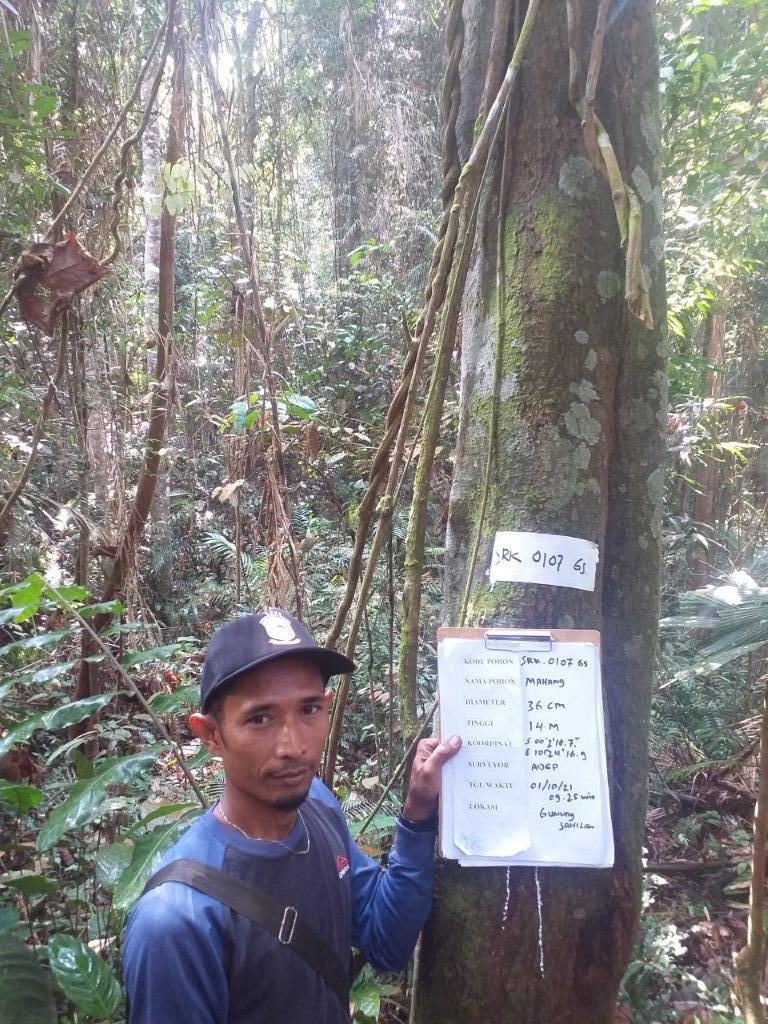 SRK 0107 GS
KODE POHON SRK. 0107 GS
NAMA POHON MAHANG
DIAMETER 36 CM
TINGGI 14 M
KOORDINAT S 00°2'18.7"
E 10°24'16.9
SURVEYOR ADEP
TGL/WAKTU 01/10/21
09.25 WIB
LOKASI GUNUNG
SAHILAN